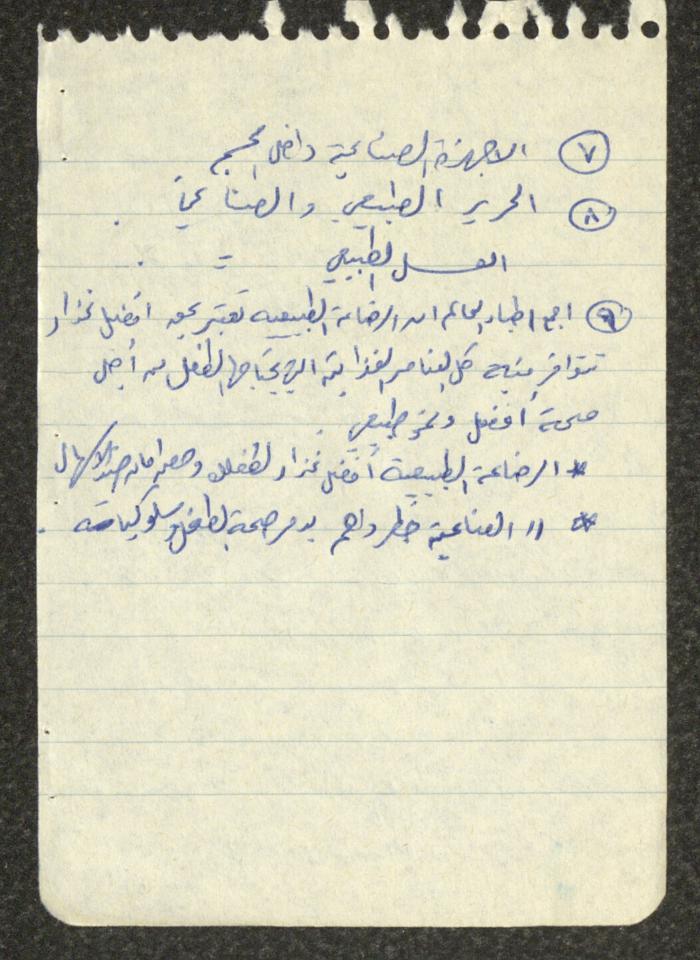 ٧ الاجهزة الصناعية داخل الجسم
٨ الحرير الطبيعي والصناعي .
العسل الطبيعي = .
٩ اجمع اطباء العالم ان الرضاعة الطبيعيه تعتبر بحق افضل غذاء
تتوافر فيه كل العناصر الغذائية التي يحتاجها الطفل من أجل
صحة أفضل ونمو طبيعي .
* الرضاعة الطبيعية أفضل غذاء لطفلك وصمام امان ضد الاسهال
* // الصناعية خطر داهم يدمر صحة الطفل وسلوكياته .